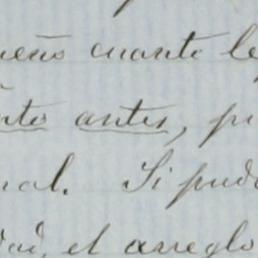 ueño cuanto le
nto antes, pu
nal. Si pudi
dad, el arreglo